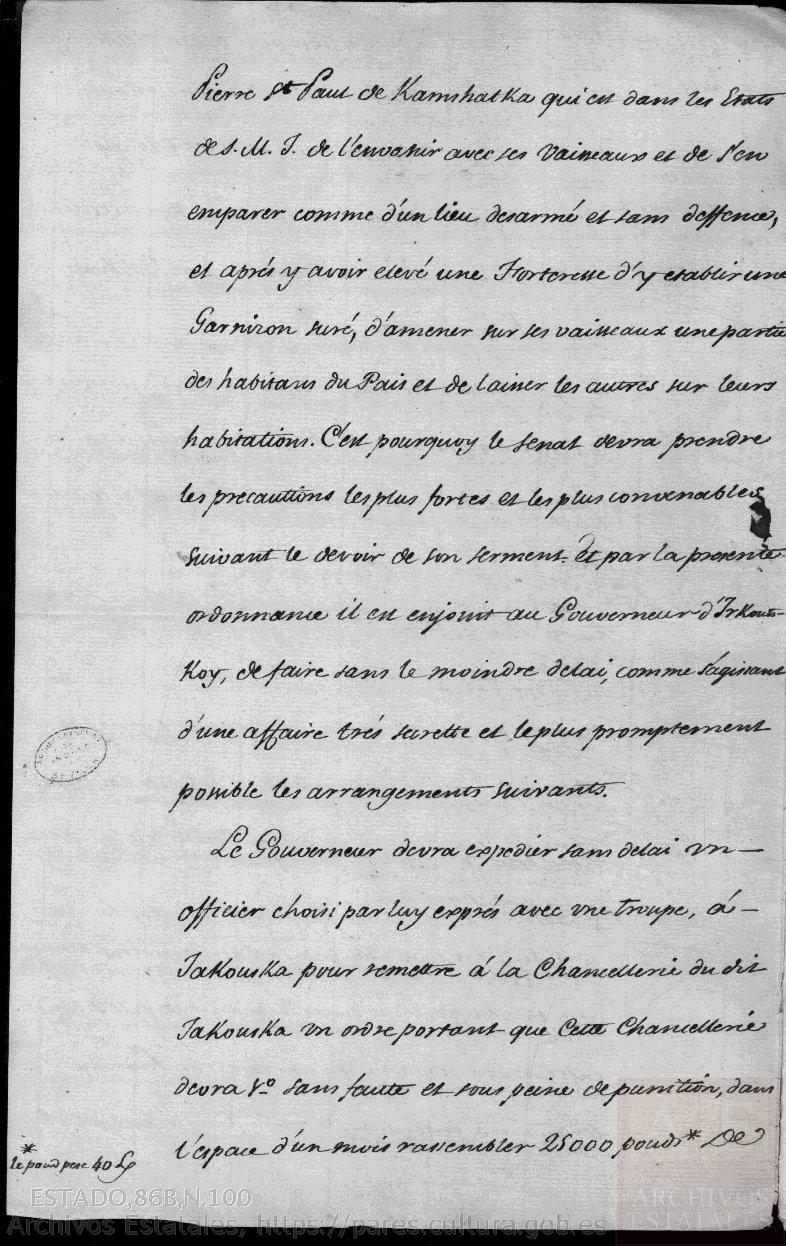 Pierre St Paul de Kamshatka qui est dans les Etats
de S. M. I. de l'envahir avec ses vaisseaux et de s'en
emparer comme d'un lieu desarmé et sans deffence,
et aprés y avoir elevé une Forteresse d'y etablir une
Garnizon suré, d'amener sur ses vaisseaux une partie
des habitans du Pais et de laisser les autres sur leurs
habitations. C'est pourquoy le senat devra prendre
les precautions les plus fortes et les plus convenables
suivant le devoir de son serment. Et par la presente
ordonnance il est enjoint au Gouverneur d'Irkouts-
Koy, de faire sans le moindre delai, comme s'agissant
d'une affaire trés secrette et le plus promptement
possible les arrangements suivants.
Le Gouverneur devra expedier sans delai un
officier choisi par luy exprés avec une troupe, á
Jakouska pour remettre á la Chancellerie du dit
Jakouska un ordre portant que Cette Chancellerie
devra 1º sans faute et sous peine de punition, dans
l'espace d'un mois rassembler 25000 pouds* De
*
le poud pese 40
ESTADO,86B,N.100
Archivos Estatales, https://pares.cultura.gob.es
ARCHIVOS
ESTATALES